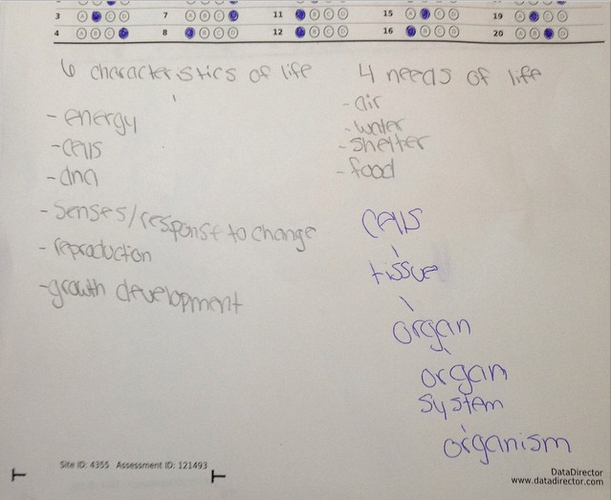 3 A B C D 7 A B C D 11 A B C D 15 A B C D 19 A B C D
4 A B C D 8 A B C D 12 A B C D 16 A B C D 20 A B C D
6 characteristics of life
- energy
- cells
- dna
- senses/response to change
- reproduction
- growth development
4 needs of life
- air
- water
- shelter
- food
cells
tissue
organ
organ
system
organism
Site ID: 4355 Assessment ID: 121493
DataDirector
www.datadirector.com